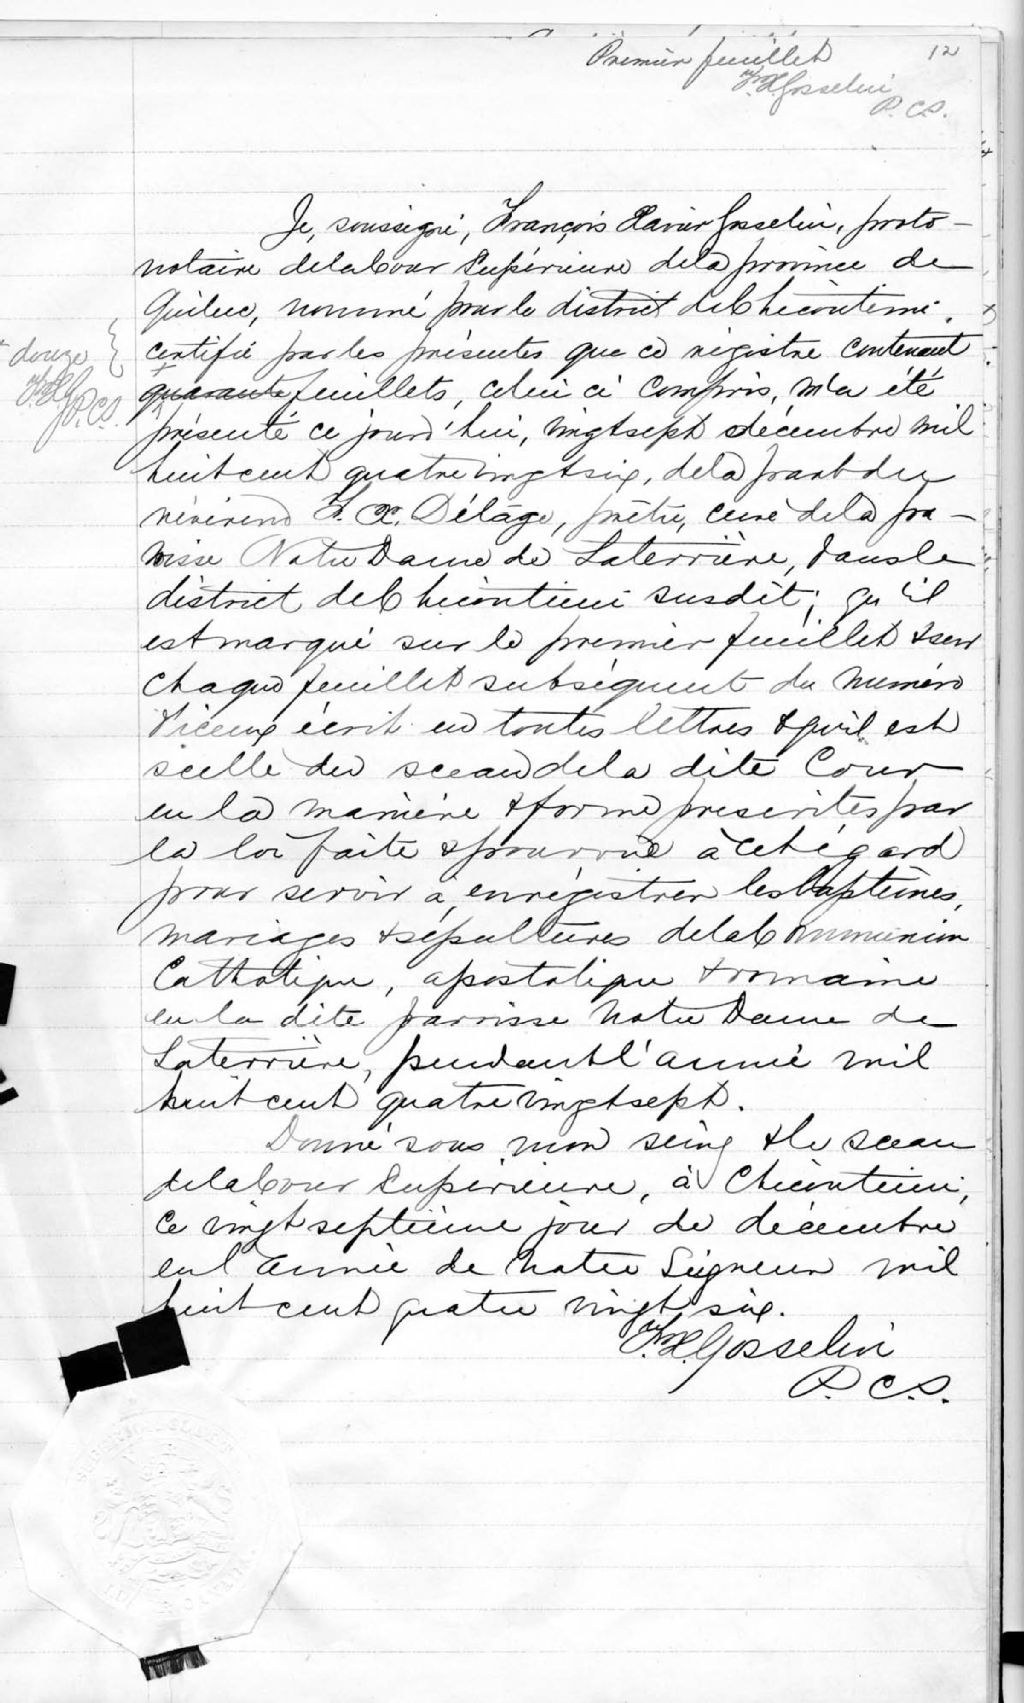 Premier feuillet 12
F. X. Gosselin
P. C. S.
Je, soussigné, François Xavier Gosselin, proto-
notaire de la Cour Supérieure de la province de
Québec, nommé pour le district de Chicoutimi,
certifie par les présentes que ce régistre contenant
+ douze
F. X. G.
P. C. S.
quarante feuillets, celui ci compris, m'a été
présenté ce jourd'hui, vingt sept décembre mil
huit cent quatre vingt six, de la part du
révérend F. X. Délâge, prêtre, curé de la pa-
roisse Notre Dame de Laterrière, dans le
district de Chicoutimi susdit; qu'il
est marqué sur le premier feuillet & sur
chaque feuillet subséquent du numéro
d'iceux écrit en toutes lettres & qu'il est
scellé du sceau de la dite Cour
en la manière & forme prescrites par
la loi faite & pourvue à cet égard
pour servir à enrégistrer les baptêmes,
mariages & sépultures de la Communion
Catholique, apostolique & romaine
en la dite paroisse Notre Dame de
Laterrière, pendant l'année mil
huit cent quatre vingt sept.
Donné sous mon seing & le sceau
de la Cour Supérieure, à Chicoutimi,
ce vingt septième jour de décembre
en l'année de Notre Seigneur mil
huit cent quatre vingt six.
F. X. Gosselin
P. C. S.